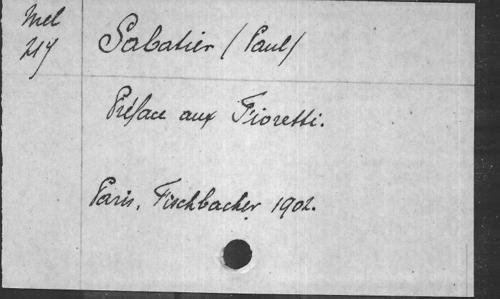 Mel Sabatier (Paul)
217
Préface aux Fioretti.
Paris, Fischbacher 1902.